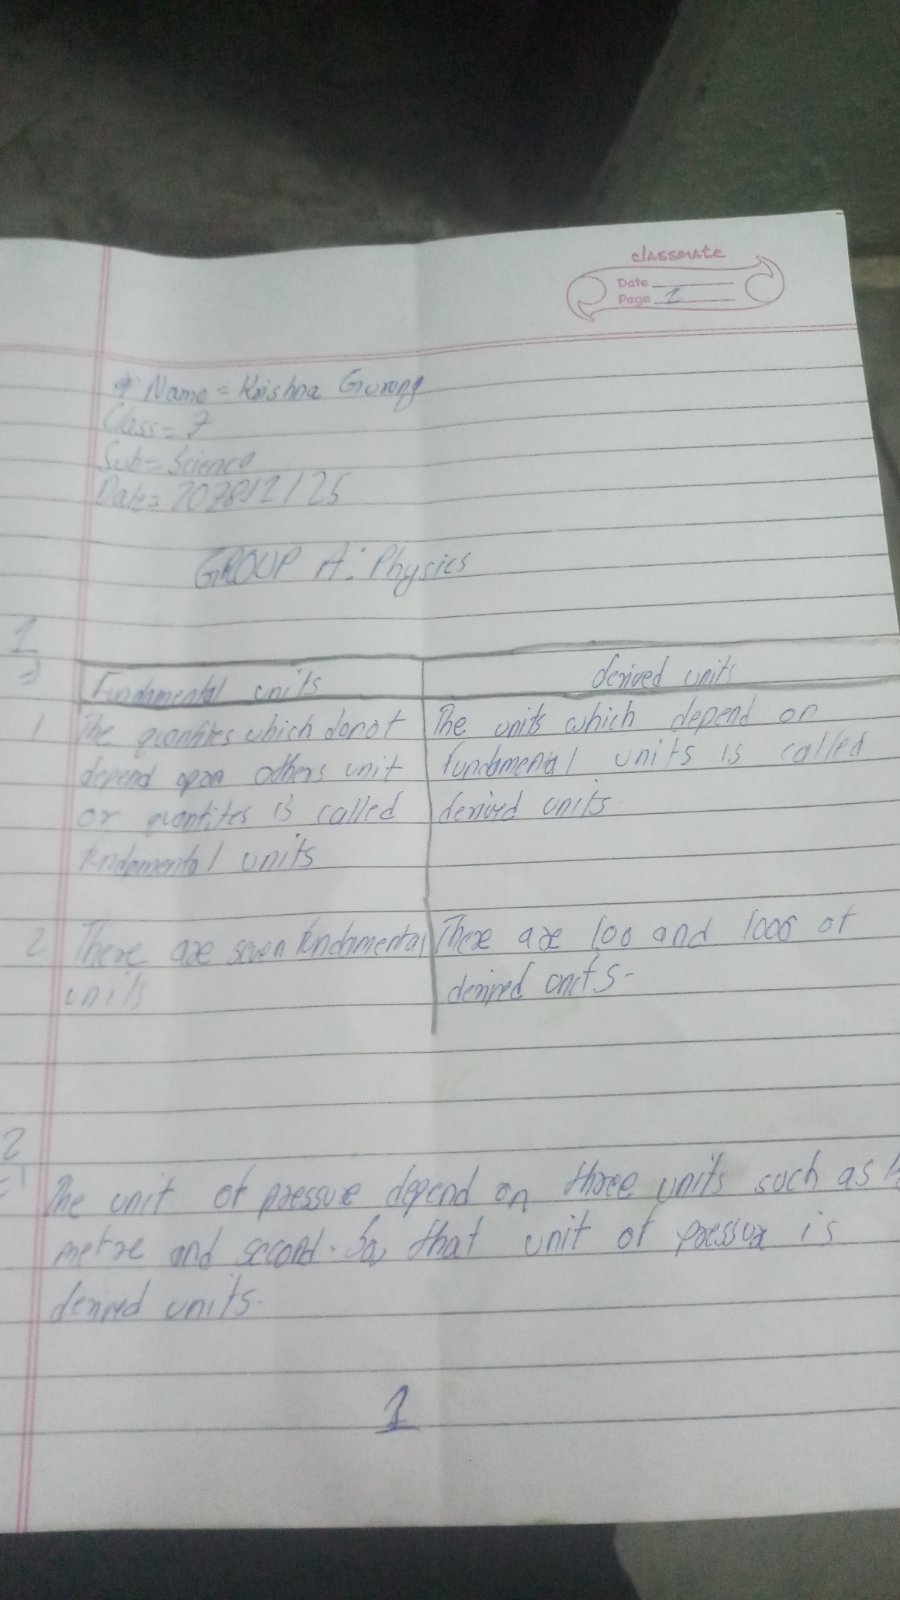 classmate
Date
Page 1
* Name = Krishna Gurung
Class = 7
Sub = Science
Date = 2078/2/25
GROUP A: Physics
1
=>
Fundamental units
derived units
1 The quantites which donot
depend upan others unit
or quantites is called
fundamental units
The units which depend on
fundamental units is called
derived units.
2 There are seven fundamental
units
There are 100 and 1000 of
derived units-
2
=>
The unit of pressure depend on three units such as
metre and second. So that unit of pressur is
derived units.
1